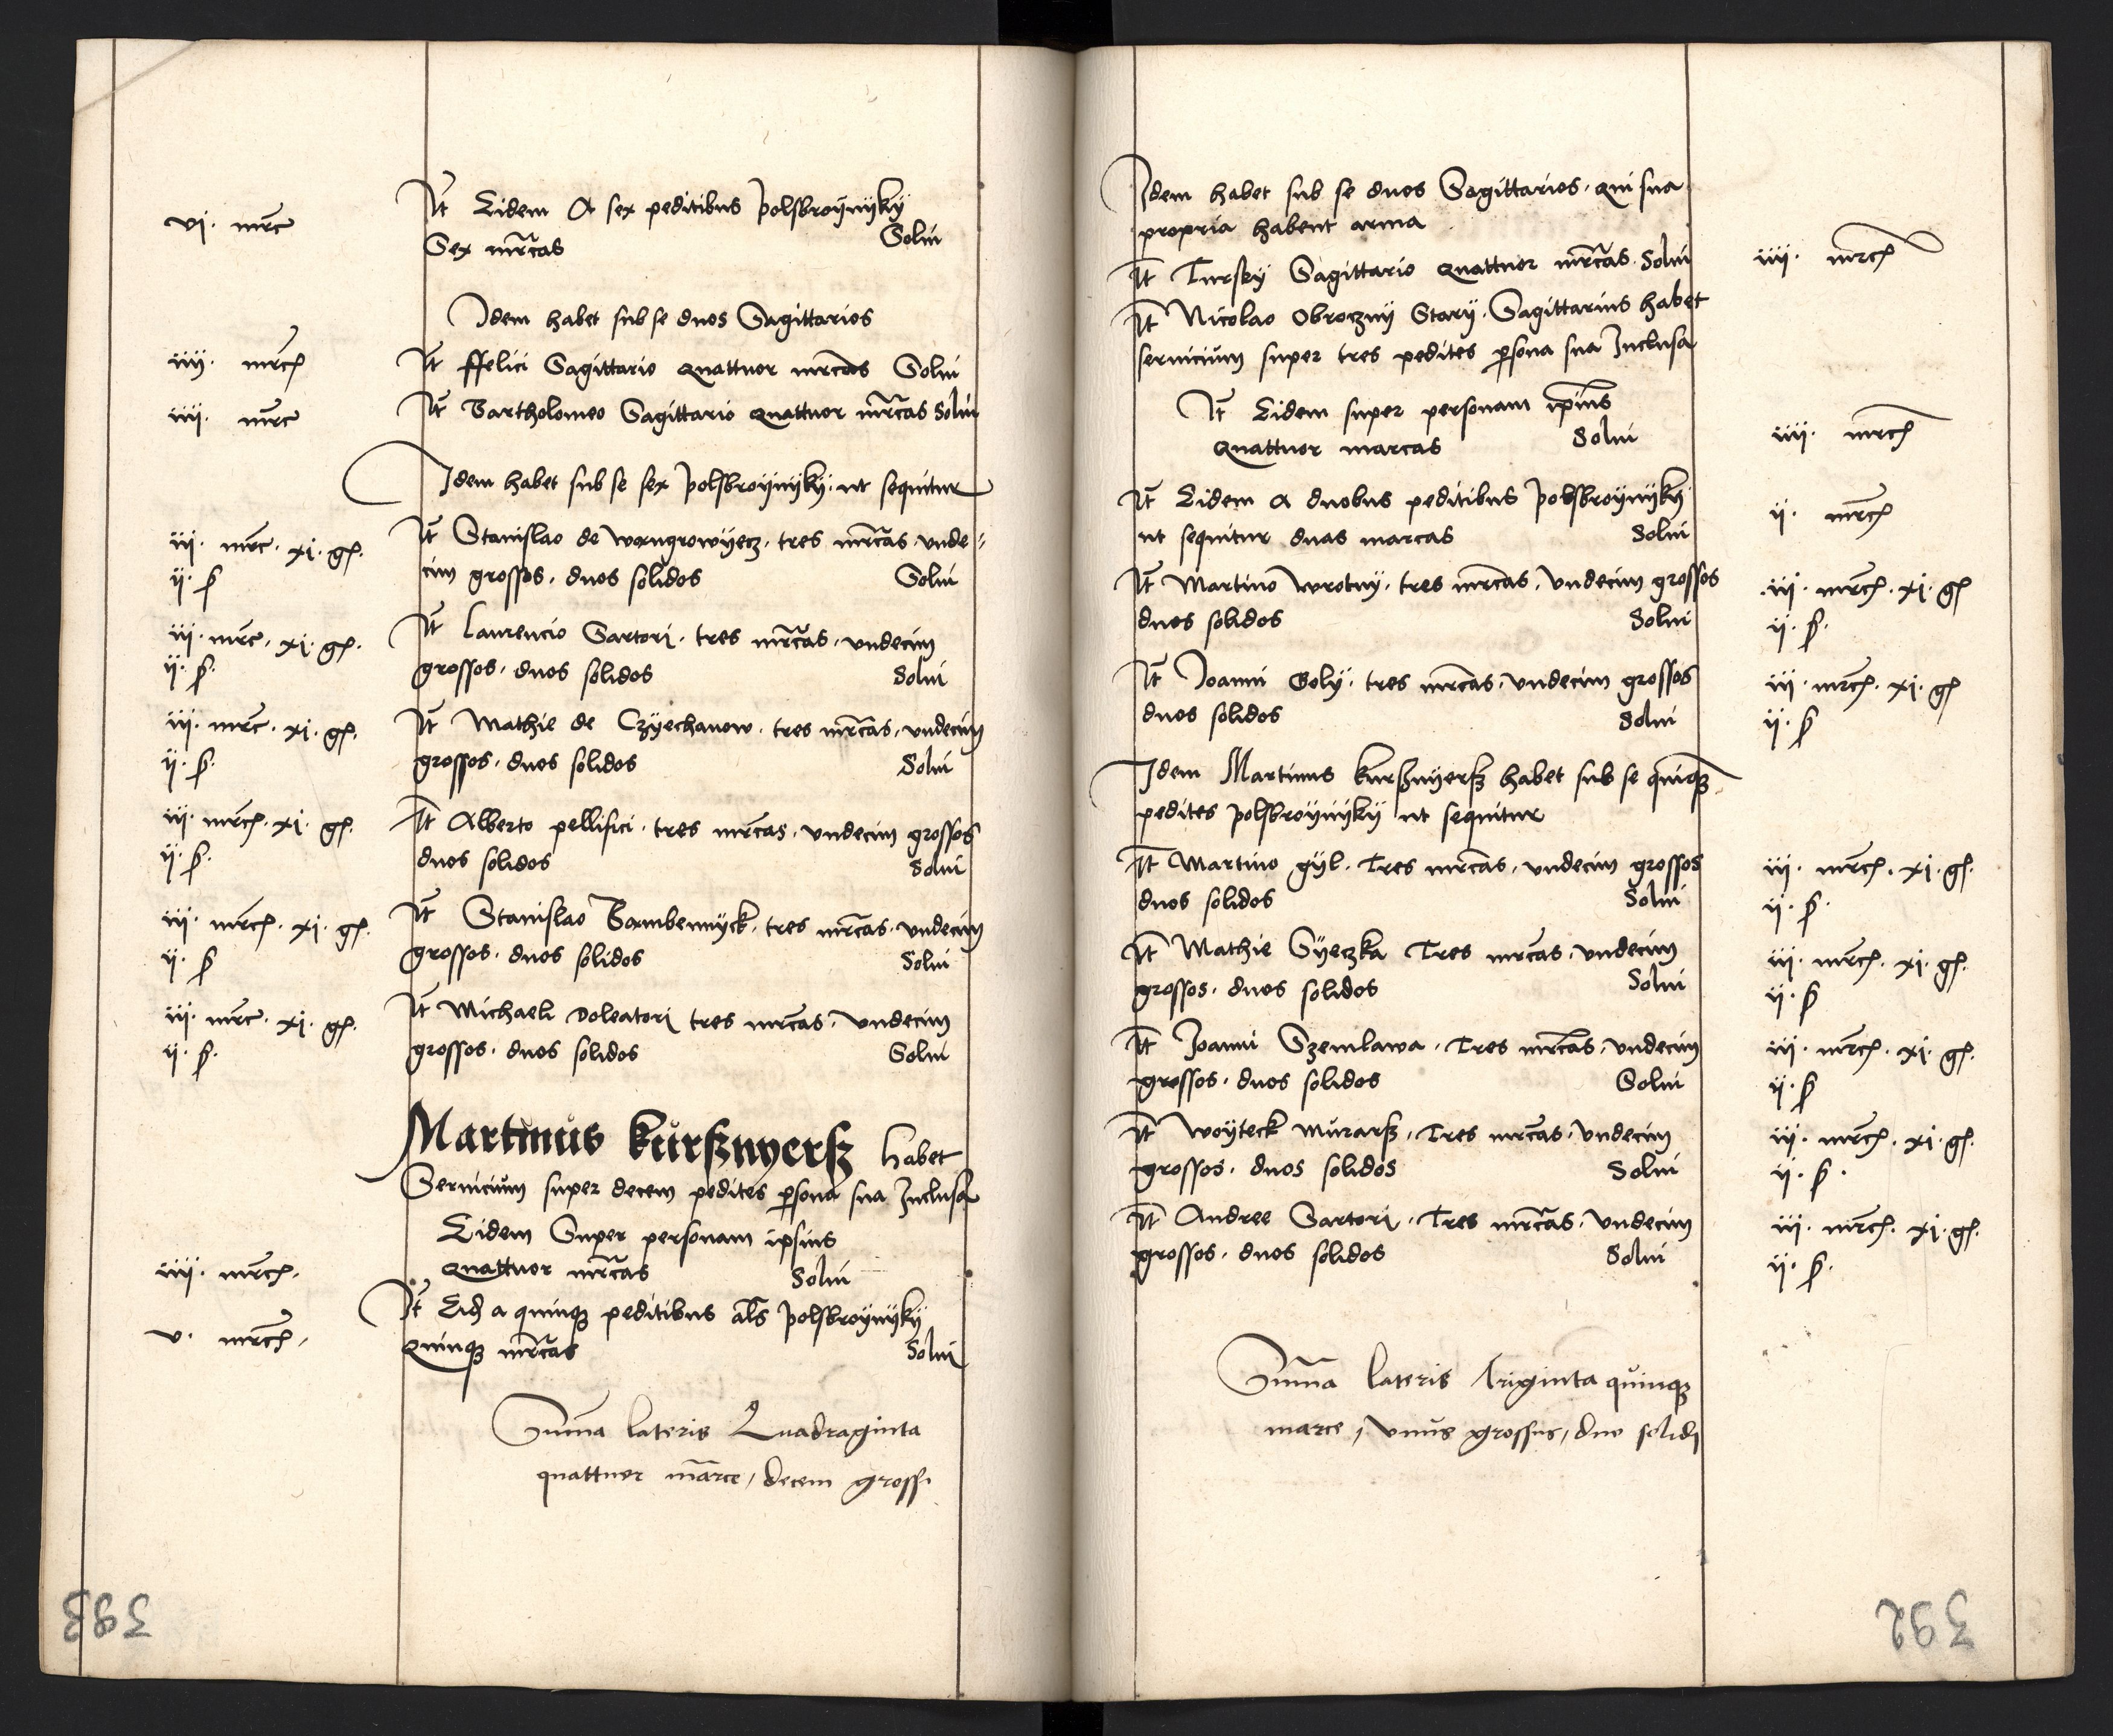 vi· mrc
It Eidem A sex peditibus polsbroÿnÿkÿ
Sex mrcas Solui
Idem habet sub se duos Sagittarios
iiij· mrc It ffelici Sagittario quattuor mrcas Solui
iiij· mrc It Bartholomeo Sagittario quattuor mrcas Solui
Idem habet sub se sex polsbroÿnÿkÿ ut sequitur
iij· mrc· xi· gs· It Stanislao de Wangrowÿecz· tres mrcas· unde-
ij· s cim grossos· duos solidos Solui
iij· mrc· xi· gs· It Laurencio Sartori· tres mrcas· undecim
ij· s· grossos· duos solidos Solui
iij· mrc· xi· gs· It Mathie de Czÿechanow· tres mrcas· undecim
ij· s· grossos· duos solidos Solui
iij· mrc· xi· gs· It Alberto pellifici· tres mrcas· undecim grossos
ij· s· duos solidos Solui
iij· mrc· xi· gs· It Stanislao Bambennÿck· tres mrcas· undecim
ij· s grossos· duos solidos Solui
iij· mrc· xi· gs· It Michaeli Doleatori tres mrcas· undecim
ij· s· grossos· duos solidos Solui
Martinus kurßnyerß habet
Seruicium super decem pedites psona sua Inclusa
Eidem Super personam ipsius
iiij· mrc· quattuor mrcas Solui
It Eid a quinqꝫ peditibus als polsbroÿnÿkÿ
v· mrc· quinqꝫ mrcas Solui
Suma lateris Quadraginta
quattuor marce, decem gross·
393
Idem habet sub se duos Sagittarios· qui sua
propria habent arma
It Turskÿ Sagittario quattuor mrcas· Solui iiij· mrc
It Nicolao Obrocznÿ Starÿ· Sagittarius habet
seruicium super tres pedites psona sua Inclusa
It Eidem super personam ipius
quattuor marcas Solui iiij· mrc
It Eidem A duobus peditibus polsbroÿnÿkÿ
ut sequitur duas marcas Solui ij· mrc
It Martino Wrotnÿ· tres mrcas· undecim grossos iij· mrc· xi· gs
duos solidos Solui ij· s·
It Joanni Golÿ· tres mrcas· undecim grossos iij· mrc· xi· gs
duos solidos Solui ij· s
Idem Martinus kurßnÿerß habet sub se quinqꝫ
pedites polsbroÿnÿkÿ ut sequitur
It Martino gÿl· Tres mrcas· undecim grossos iij· mrc· xi· gs·
duos solidos Solui ij· s·
It Mathie Sÿeczka Tres mrcas· undecim iij· mrc· xi· gs·
grossos· duos solidos Solui ij· s
It Joanni Szemlawa· Tres mrcas· undecim iij· mrc· xi· gs·
grossos· duos solidos Solui ij· s
It Woÿteck murarß· Tres mrcas· undecim iij· mrc· xi· gs·
grossos· duos solidos Solui ij· s·
It Andree Sartori· Tres mrcas· undecim iij· mrc· xi· gs·
grossos· duos solidos Solui ij· s·
Suma lateris Triginta quinqꝫ
marce, unus grossus, duo solidi
392